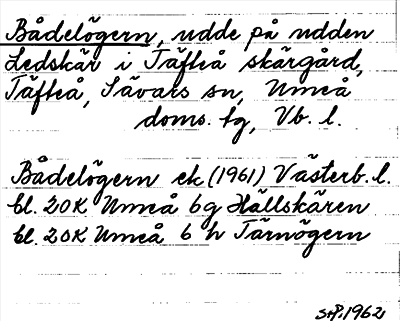 Bådelögern, udde på udden
Ledskär i Täfteå skärgård,
Täfteå, Sävars sn, Umeå
doms. tg, Vb. l.
Bådelögern ek (1961) Västerb. l.
bl. 20K Umeå 6g Hällskären
bl. 20K Umeå 6 h Tärnögern
S.P. 1962